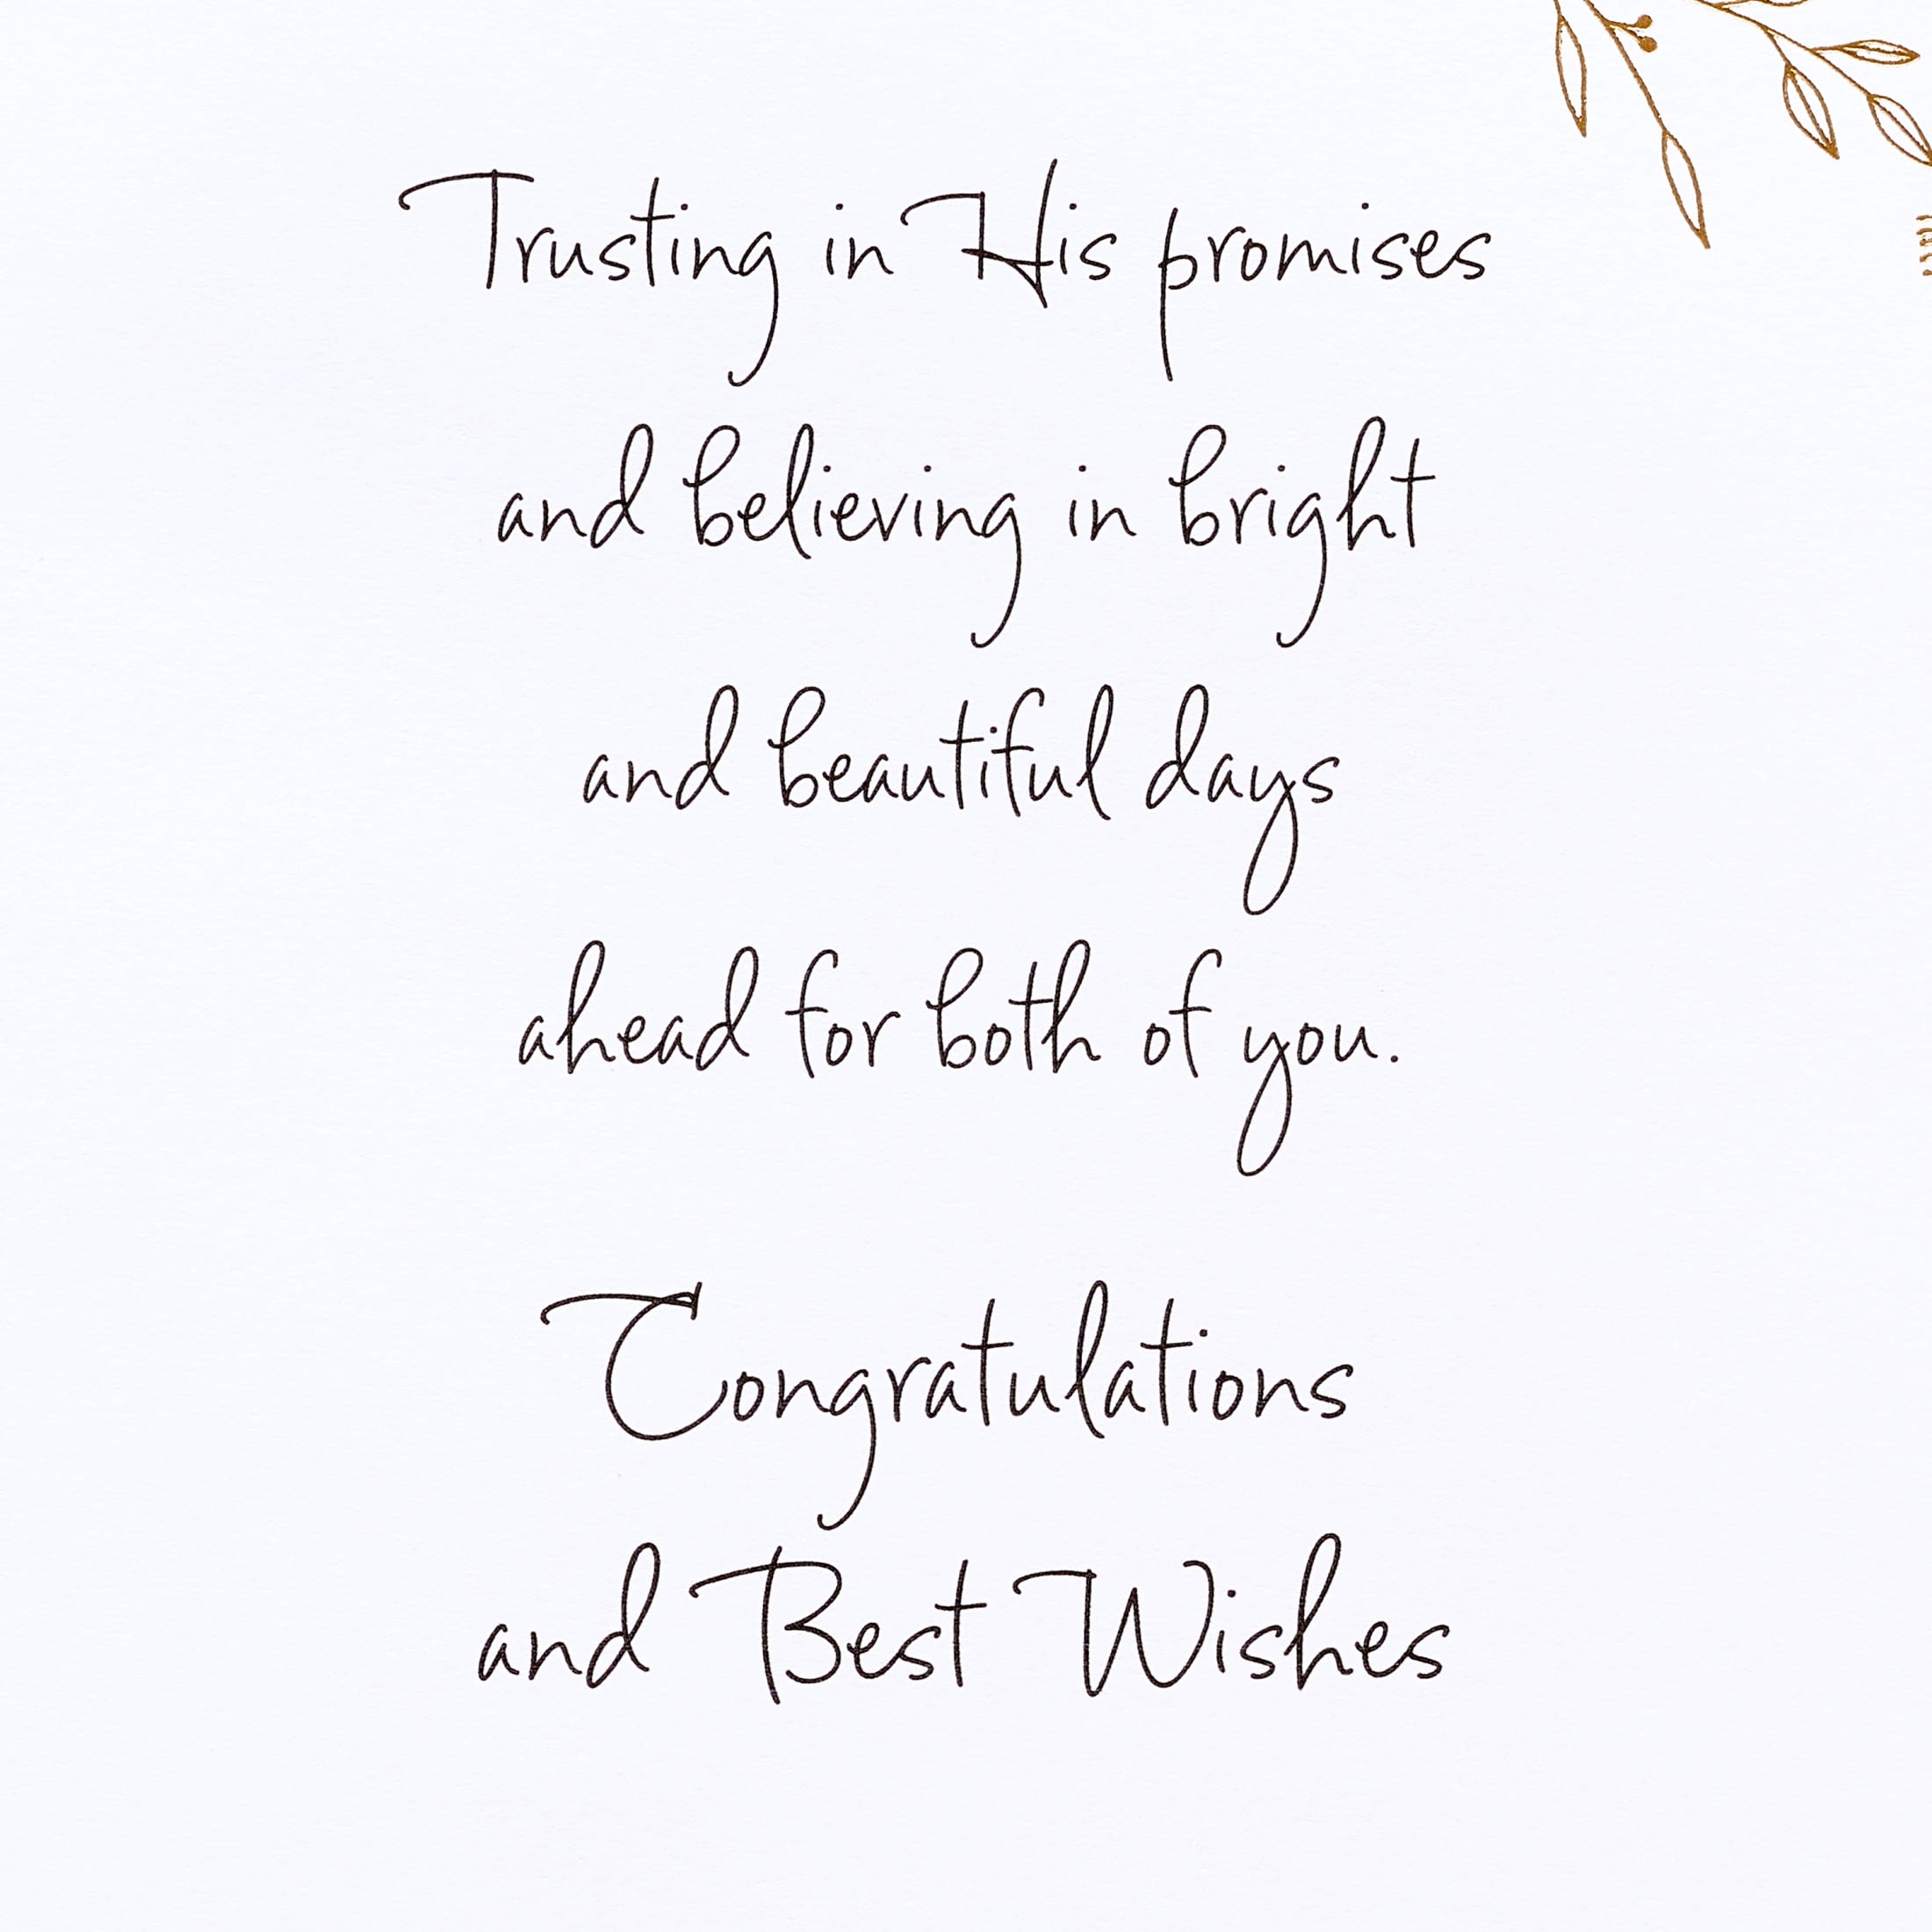 Trusting in His promises
and believing in bright
and beautiful days
ahead for both of you.
Congratulations
and Best Wishes